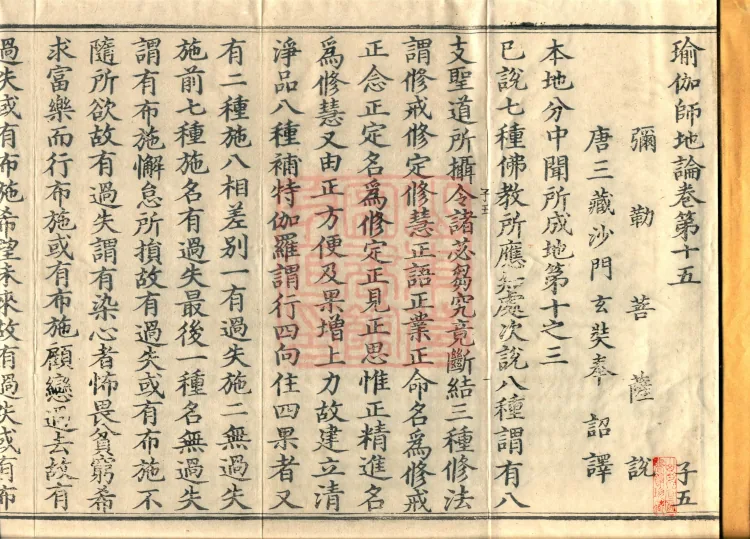 瑜伽師地論卷第十五 子五
彌勒菩薩說
唐三藏沙門玄奘奉 詔譯
本地分中聞所成地第十之三
已說七種佛教所應知處次說八種謂有八
支聖道所攝令諸苾芻究竟斷結三種修法
子五
謂修戒修定修慧正語正業正命名為修戒
正念正定名為修定正見正思惟正精進名
為修慧又由正方便及果增上力故建立清
淨品八種補特伽羅謂行四向住四果者又
有二種施八相差別一有過失施二無過失
施前七種施名有過失最後一種名無過失
謂有布施懈怠所損故有過失或有布施不
隨所欲故有過失謂有染心者怖畏貧窮希
求富樂而行布施或有布施顧戀過去故有
過失或有布施希望未來故有過失或有布